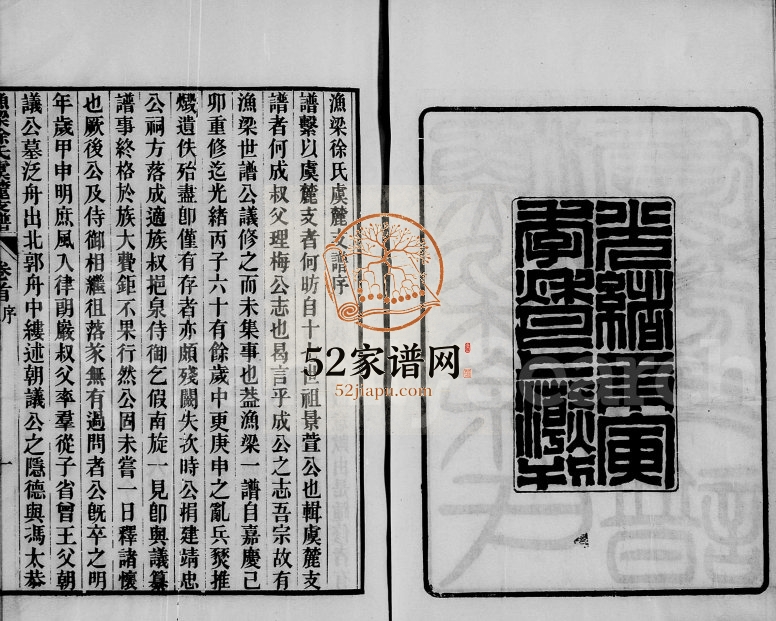 光緒庚寅
漁梁徐氏虞麓支譜序
譜繫以虞麓支者何昉自十世祖景萱公也輯虞麓支
譜者何成叔父理梅公志也曷言乎成公之志吾宗故有
漁梁世譜公議修之而未集事也葢漁梁一譜自嘉慶己
卯重修迄光緒丙子六十有餘歲中更庚申之亂兵燹推
燬遺佚殆盡卽僅有存者亦頗殘闕失次時公捐建靖忠
公祠方落成適族叔挹泉侍御乞假南旋一見卽與議纂
譜事終格於族大費鉅不果行然公固未嘗一日釋諸懷
也厥後公及侍御相繼徂落家無有過問者公旣卒之明
年歲甲申明庶風入律朗巖叔父率羣從子省曾王父朝
議公墓泛舟出北郭舟中縷述朝議公之隱德與馮太恭
漁梁徐氏虞麓支譜 卷首 序 一
52家谱网
52jiapu.com